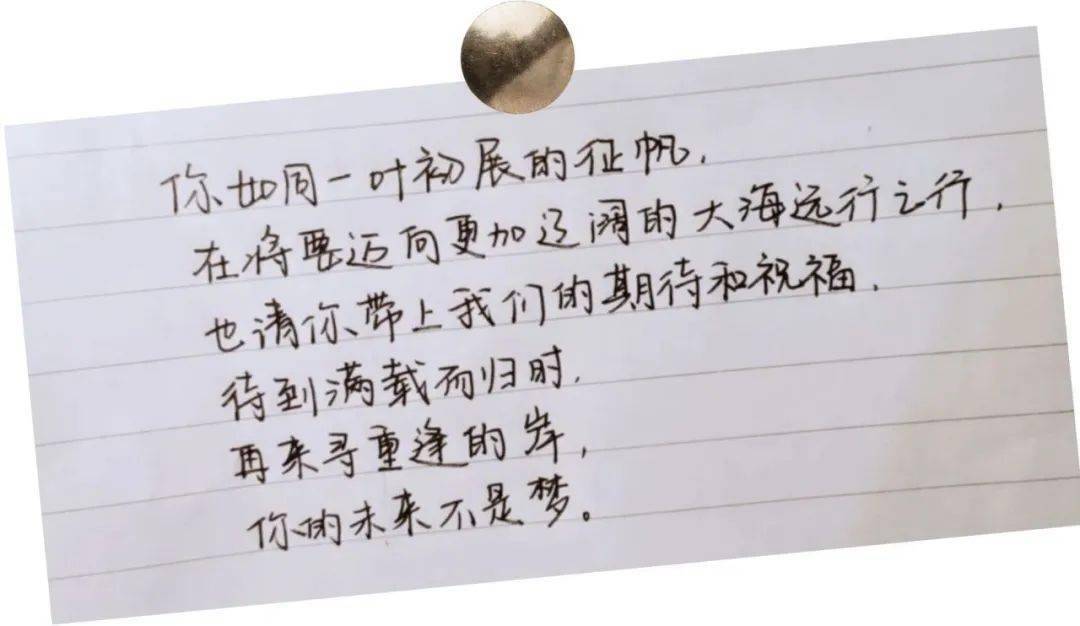 你如同一叶初展的征帆，
在将要迈向更加辽阔的大海远行之行，
也请你带上我们的期待和祝福，
待到满载而归时，
再来寻重逢的岸，
你的未来不是梦。